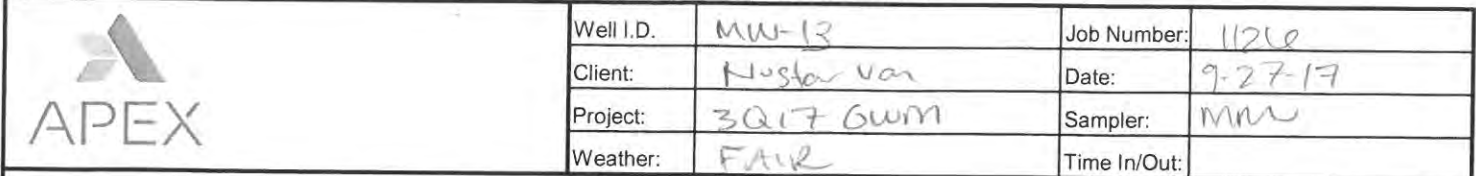 Well I.D. MW-13 Job Number: 1126
Client: Nustar Van Date: 9-27-17
APEX
Project: 3Q17 GWM Sampler:
Weather: FAIR Time In/Out: